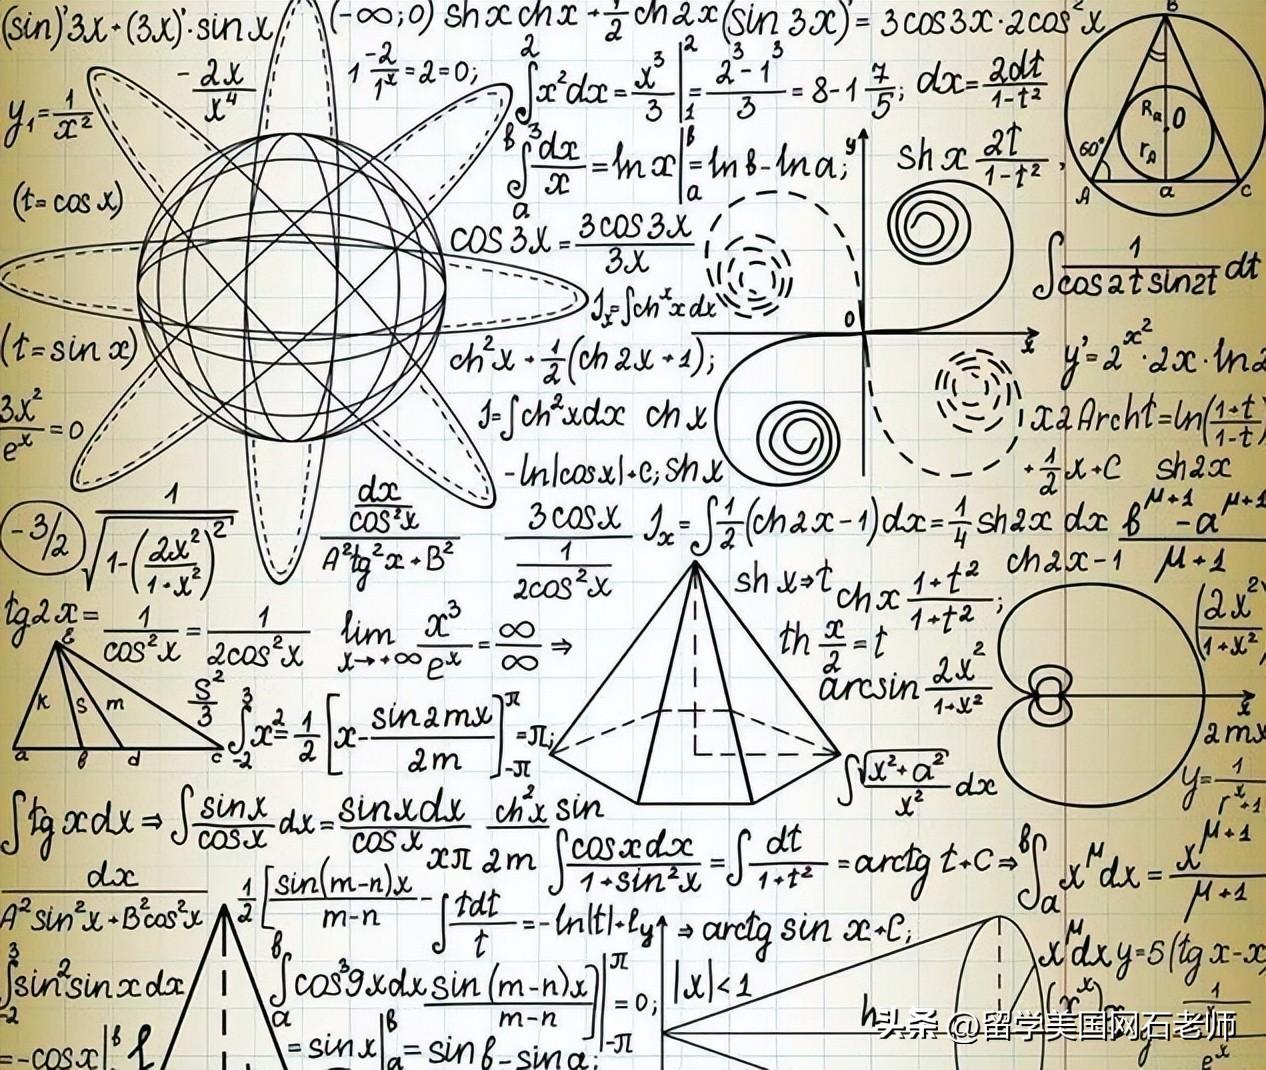 (sin)'3x+(3x)'·sin x
(-∞;0) sh x ch x + 1/2 ch 2x (sin 3x)' = 3 cos 3x · 2 cos² x
- 2x/x⁴
1 -2/1ˣ = 2 = 0;
2 ∫ x² dx = x³/3 |₁² = (2³-1³)/3 = 8-1 7/5; dx = 2dt/(1-t²)
y₁ = 1/x²
в 3 ∫ₐ dx/x = ln x |ₐᵇ = ln в - ln a;
y
sh x 2t/(1-t²),
B
Rₐ O
60° rₐ
A a C
(t = cos x)
cos 3x = 3 cos 3x/3x
Jₓ = ∫ chˣ x dx
0
x
∫ 1/(cos 2t sin 2t) dt
(t = sin x)
ch² x + 1/2 (ch 2x + 1);
y' = 2^x² · 2x · ln 2
3x²/eˣ = 0
J = ∫ ch² x dx ch x
x 2 Arch t = ln (1+t/1-t)
- ln|cos x| + c; sh x
+ 1/2 x + C sh 2x
-3/2
1/√(1-(2x²/(1+x²))²)
dx/cos² x / A² tg² x + B²
3 cos x / 1/2cos² x
Jₓ = ∫ 1/2 (ch 2x - 1) dx = 1/4 sh 2x dx
в^μ+1 - a^μ+1 / μ+1
ch 2x - 1
tg 2x = 1/cos² x = 1/2cos² x
lim x→+∞ x³/eˣ = ∞/∞ ⇒
sh x ⇒ t ch x (1+t²)/(1+t²);
(2x²/1+x²)
th x/2 = t
arcsin 2x²/(1+x²)
k s m
a в d c
S²/3
3 ∫₋₂ x² = 1/2 [x - sin 2mx/2m] π -π = π;
x
2 mx
∫ √(x²+a²)/x² dx
∫ tg x dx ⇒ ∫ sin x/cos x dx = sin x dx/cos x ch² x sin
xπ 2m
∫ cos x dx/(1+sin² x) = ∫ dt/(1+t²) = arctg t + C ⇒ ∫ₐᵇ x^μ dx = x^μ+1/μ+1
dx/(A² sin² x + B² cos² x)
1/2 [sin(m-n)x/m-n -
∫ tdt/t = - ln|t| + ⇒ arctg sin x + C;
3 ∫₋₂ sin² sin x dx
в ∫ₐ cos³ 9x dx sin(m-n)x/m-n | π -π = 0;
|x| < 1
x^μ dx y = 5(tg x - x
h
(xˣ)
= -cos x|ᵇ
= sin x|ₐᵇ = sin в - sin a;
eˣ
头条 @留学美国网石老师